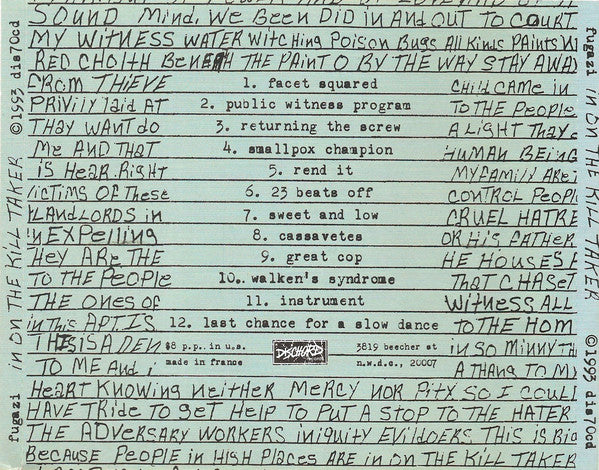 SOUND Mind. We Been DID in And OUT TO COURT
MY WITNESS WATER WITCHING POISON BUGS All Kinds PAints Wi
RED CHOITH BeneaH THE PAINT O BY THE WAY STAY AWA
FROM THIEVE 1. facet squared CHILD CAME in
PRIVILY laid AT 2. public witness program TO THE PEOPLE
THAY WANT do 3. returning the screw A LIGHT THAY
Me AND THAT 4. smallpox champion HUMAN BEING
is HeAR. RigHT 5. rend it MY FAMILY ARE
VICTIMS OF THese 6. 23 beats off CONTROL PEOPL
LANDLORDS in 7. sweet and low CRUEL HATRE
in EXPelling 8. cassavetes OR His FATHER
Hey ARE THE 9. great cop HE HOUSES
TO THE PEOPLE 10. walken's syndrome THAT CHASET
THE ONES OF 11. instrument WITNESS ALL
in THIS APT.IS 12. last chance for a slow dance TO THE HOM
THIS iS A DEN $8 p.p. in u.s. DISCHORD 3819 beecher st in SO MINNY TH
TO ME AND i made in france n.w.d.c., 20007 A THANG TO M
HeART KNOWing neiTHER MeRCY NOR PiTY SO I COULL
HAVE TRide TO geT HeLP TO PUT A STOP TO THE HATER
THE ADVERSARY WORKERS iniquiTY EVILDOERS THIS is Rig
BeCAUSe PeOPLe iN HigH PLACes ARe iN ON THe KiLL TAKER
fugazi IN ON THE KILL TAKER ©1993 dis70cd
fugazi IN ON THE KILL TAKER ©1993 dis70cd